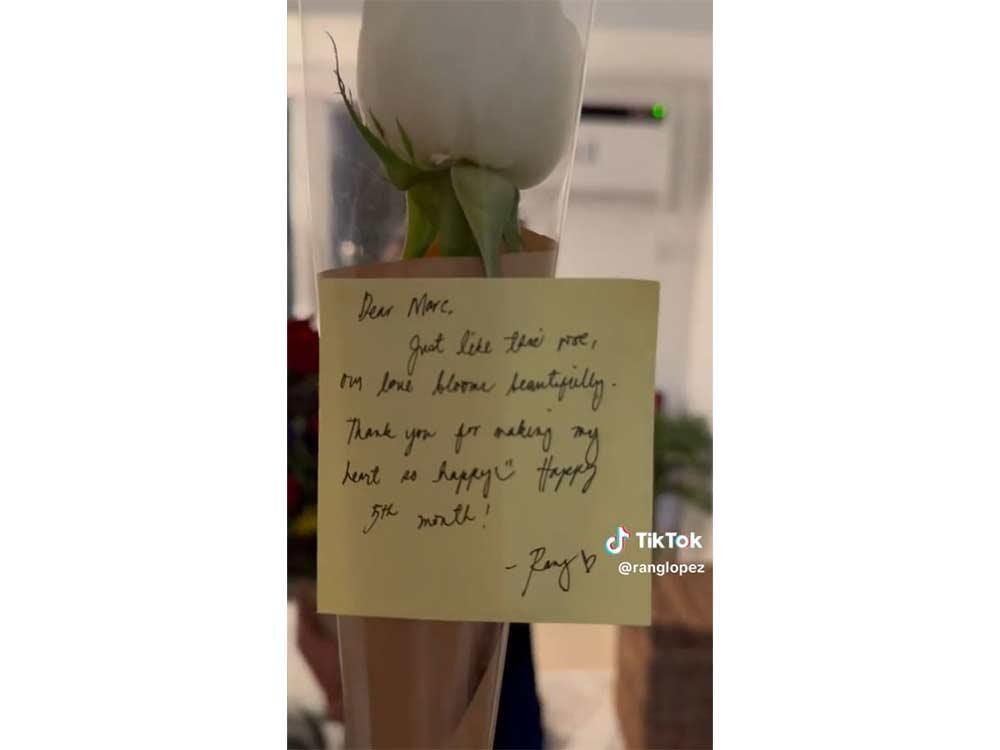 Dear Marc,
Just like this rose,
our love blooms beautifully.
Thank you for making my
heart so happy Happy
5th month!
- Rang
TikTok
@ranglopez